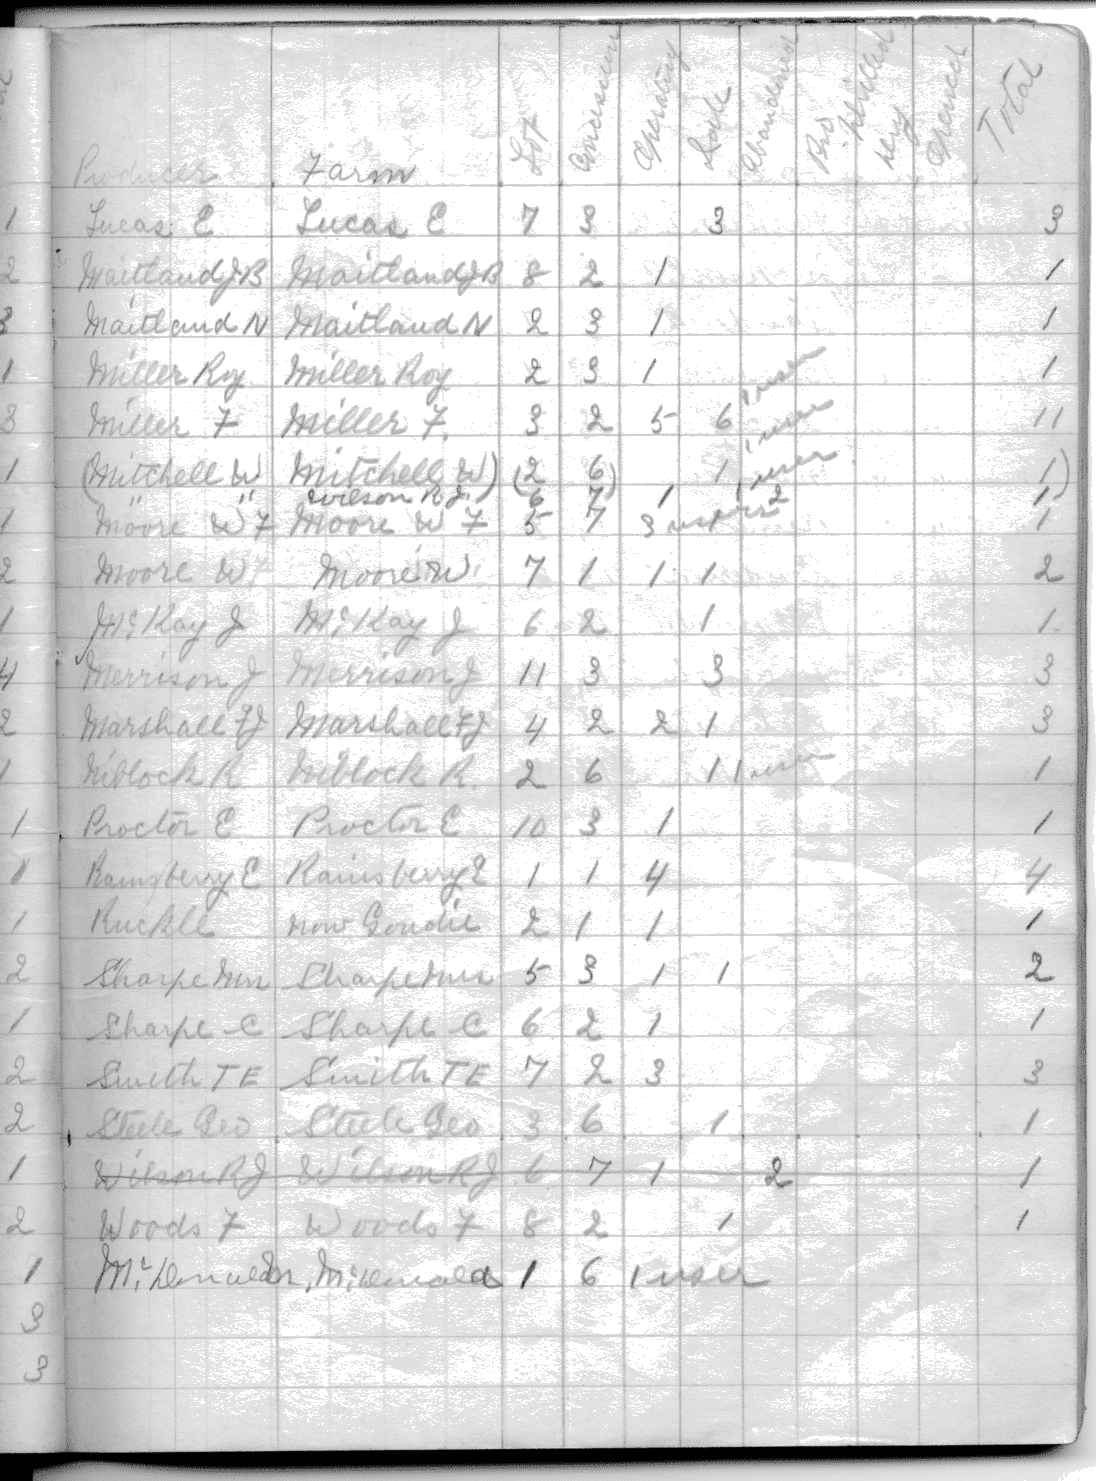 Producer Farm Lot Concession Operating Idle Abandoned Drilled Opened Total
1 Lucas E Lucas E 7 3 3 3
2 Maitland J B Maitland J B 8 2 1 1
3 Maitland N Maitland N 2 3 1 1
1 Miller Roy Miller Roy 2 3 1 1
3 Miller F Miller F. 3 2 5 6 11
1 (Mitchell W Mitchell W) (2 6) 1 1 user 1)
" " Wilson R J. 6 7 1 2 1
1 Moore W F Moore W F 5 7 3 1
2 Moore W. Moore W. 7 1 1 1 2
1 McKay J McKay J 6 2 1 1
4 Merrison J Merrison J 11 3 3 3
2 Marshall F J Marshall F J 4 2 2 1 3
1 Niblock R Niblock R. 2 6 1 1 user 1
1 Proctor E Proctor E 10 3 1 1
1 Rainsberry E Rainsberry E 1 1 4 4
1 Ruckle now Goudie 2 1 1 1
2 Sharpe Wm Sharpe Wm 5 3 1 1 2
1 Sharpe C Sharpe C 6 2 1 1
2 Smith T E Smith T E 7 2 3 3
2 Steele Geo Steele Geo 3 6 1 1
1 Wilson R J Wilson R J 6 7 1 2 1
2 Woods F Woods F 8 2 1 1
1 1 6 1 user
3
3